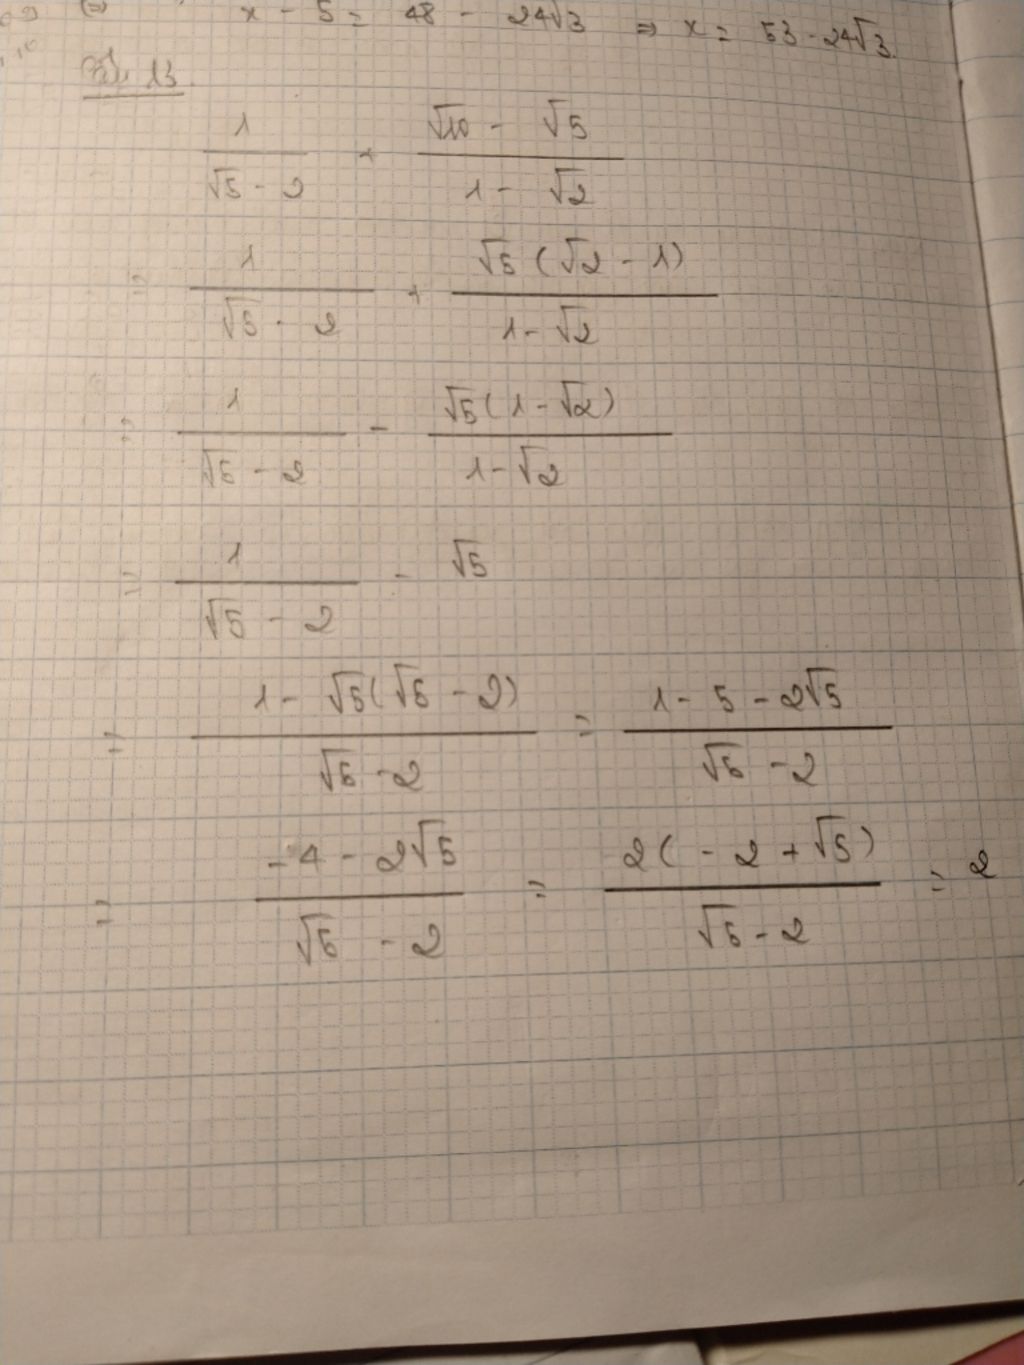 x - 5 = 48 - 24√3 ⇒ x = 53 - 24√3
13
1/(√5 - 2) + (√10 - √5)/(1 - √2)
= 1/(√5 - 2) + √5(√2 - 1)/(1 - √2)
= 1/(√5 - 2) - √5(1 - √2)/(1 - √2)
= 1/(√5 - 2) - √5
= (1 - √5(√5 - 2))/(√5 - 2) = (1 - 5 - 2√5)/(√5 - 2)
= (-4 - 2√5)/(√5 - 2) = 2(-2 + √5)/(√5 - 2) = 2